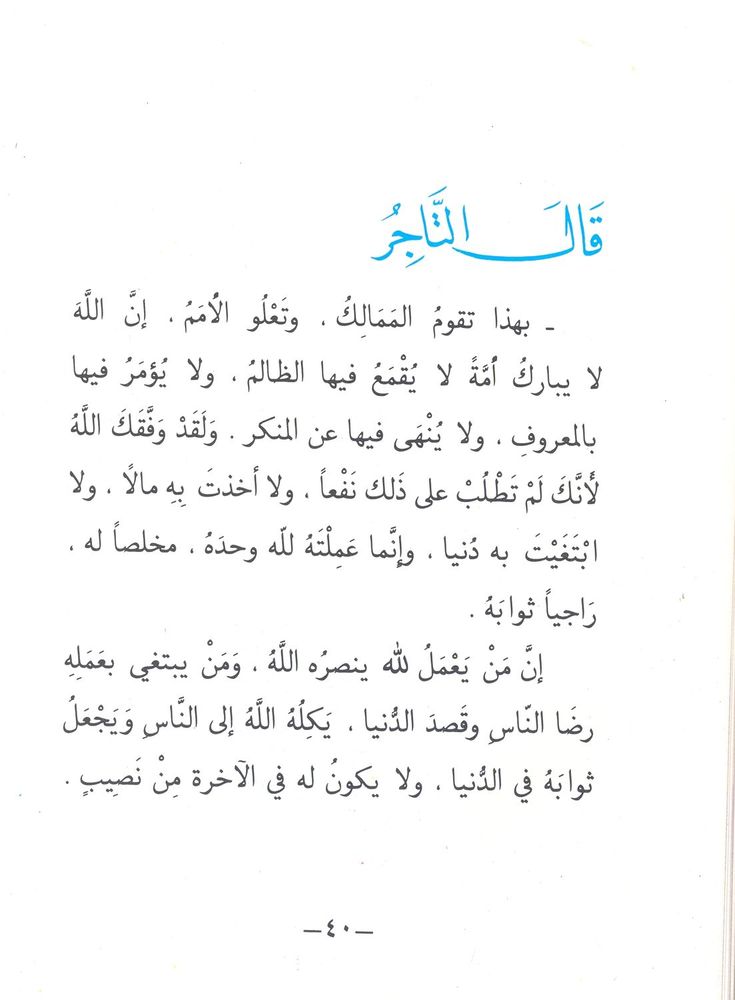 قَالَ التَّاجِرُ
ـ بهذا تقومُ المَمَالِكُ ، وتَعْلُو الأُمَمُ ، إنَّ اللَّهَ
لا يباركُ أُمَّةً لا يُقْمَعُ فيها الظالمُ ، ولا يُؤمَرُ فيها
بالمعروفِ ، ولا يُنْهَى فيها عن المنكر . وَلَقَدْ وَفَّقكَ اللَّهُ
لأَنَّكَ لَمْ تَطْلُبْ على ذَلك نَفْعاً ، ولا أخذتَ بِهِ مالًا ، ولا
ابْتَغَيْتَ به دُنيا ، وإِنَّما عَمِلْتَهُ للّه وحدَهُ ، مخلصاً له ،
رَاجياً ثوابَهُ .
إنَّ مَنْ يَعْمَلُ لله ينصرُه اللَّهُ ، وَمَنْ يبتغي بعَمَلِهِ
رضَا النّاسِ وقَصدَ الدُّنيا ، يَكِلُهُ اللَّهُ إلى النَّاسِ وَيَجْعَلُ
ثوابَهُ في الدُّنيا ، ولا يكونُ له في الآخرة مِنْ نَصِيبٍ .
ـ٤٠ـ